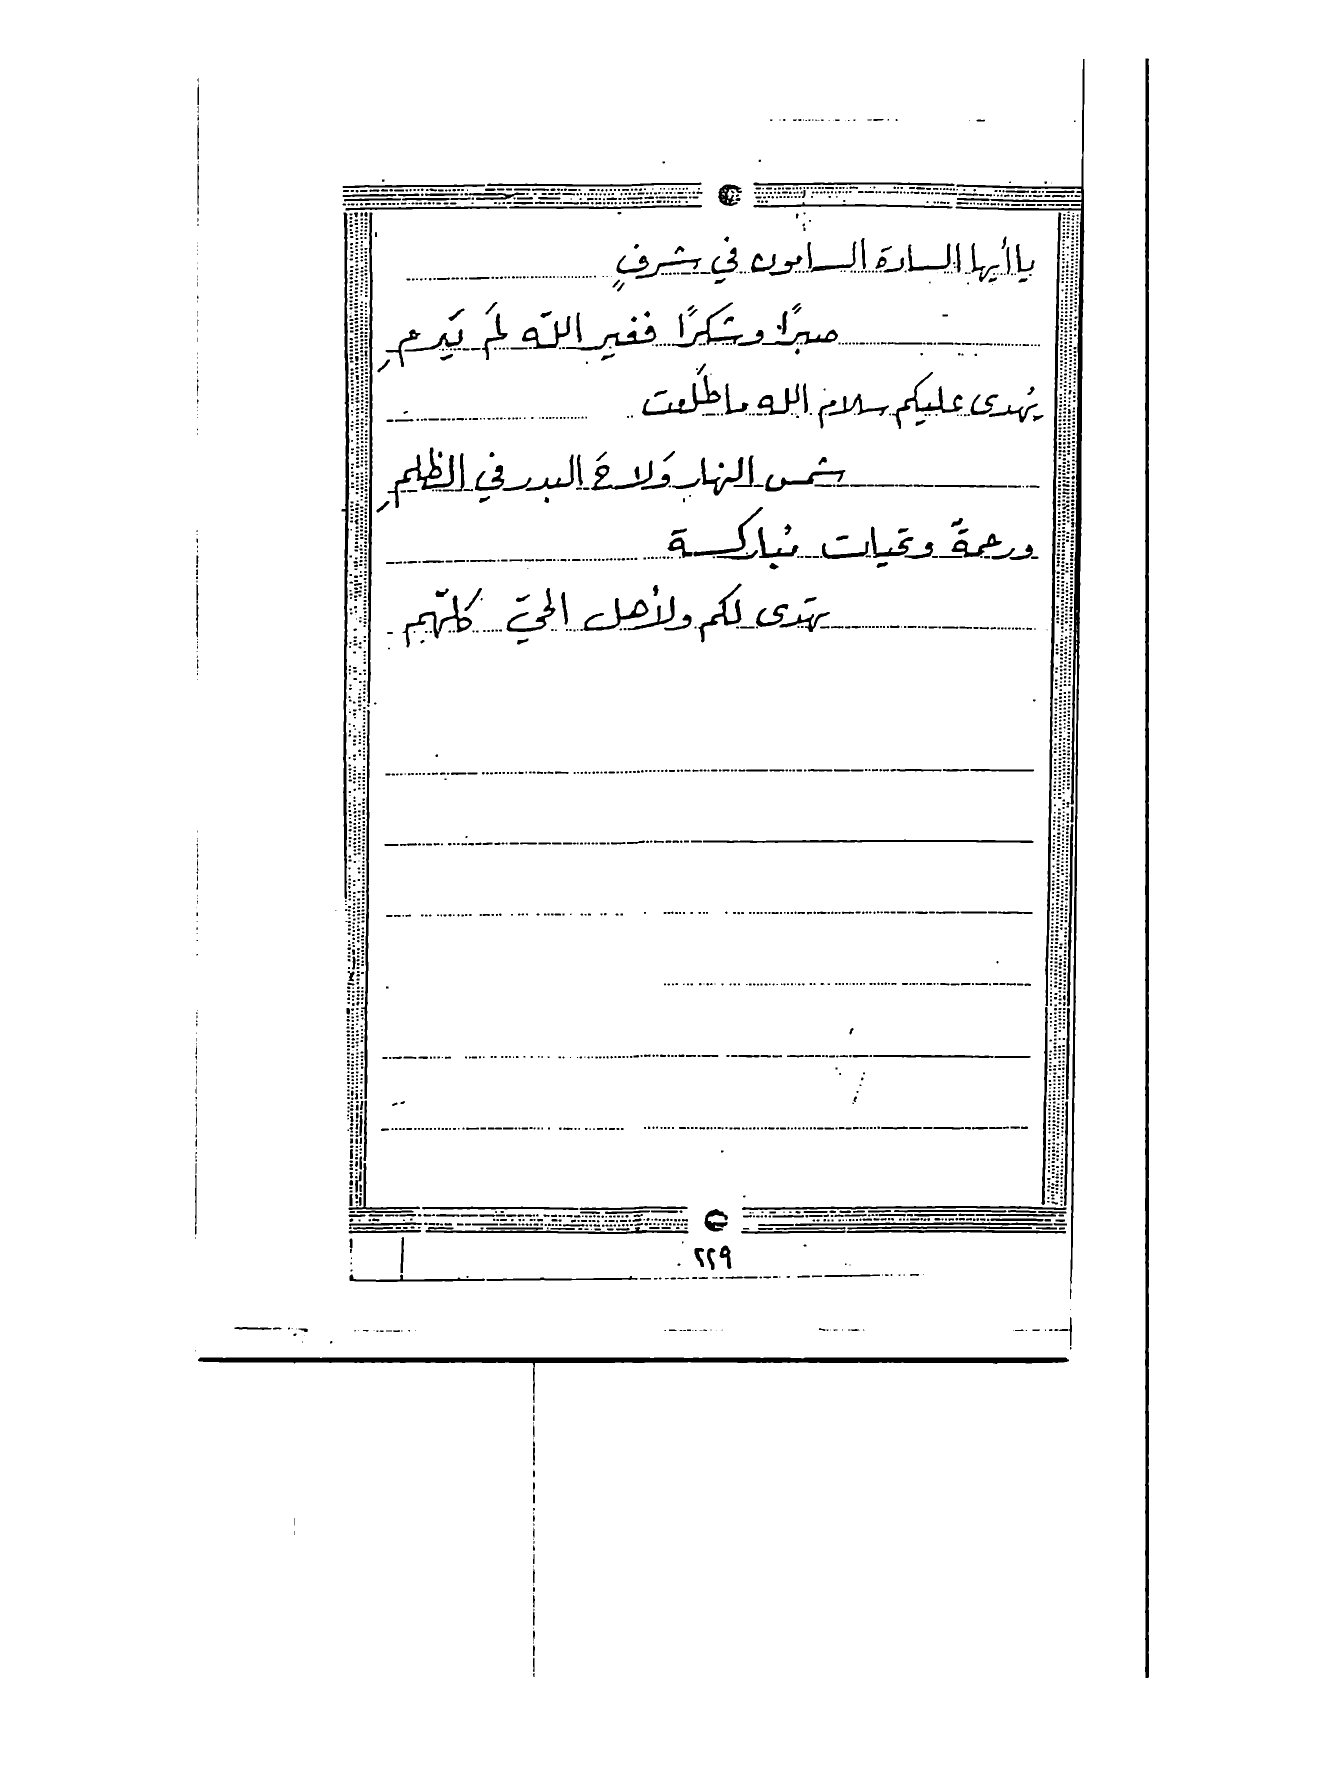 يا أيها السادة السامون في شرفٍ
صبرًا وشكرًا فغير اللّه لمَ يَدمِ
يُهدى عليكم سلام الله ما طلَعت
شمس النهار وَلاحَ البدر في الظلمِ
ورحمةٌ وتحيات مُباركة
تهدى لكم ولأهل الحيّ كلّهم
٢٢٩